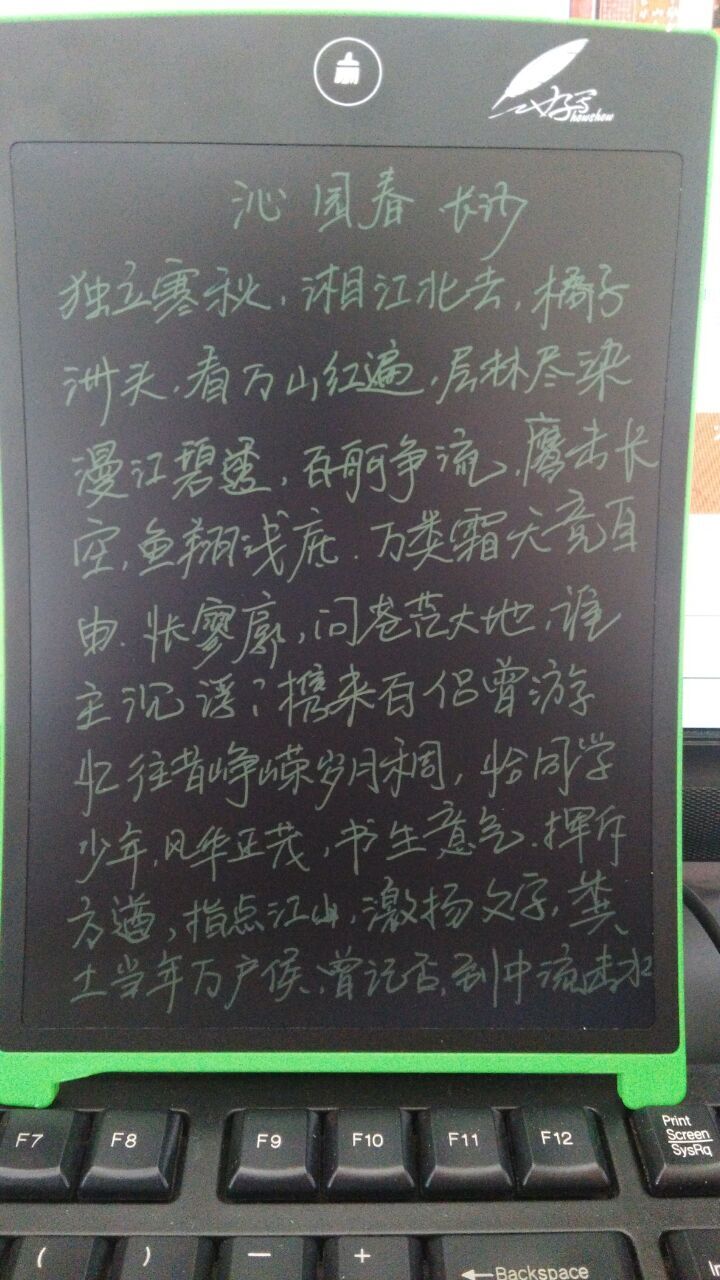 好写
howshow
沁园春 长沙
独立寒秋，湘江北去，橘子
洲头，看万山红遍，层林尽染
漫江碧透，百舸争流，鹰击长
空，鱼翔浅底．万类霜天竞自
由．怅寥廓，问苍茫大地，谁
主沉浮？携来百侣曾游
忆往昔峥嵘岁月稠，恰同学
少年，风华正茂，书生意气．挥斥
方遒，指点江山，激扬文字，粪
土当年万户侯、曾记否，到中流击水
F7 F8 F9 F10 F11 F12 Print
Screen
SysRq
( ) — + ←Backspace In